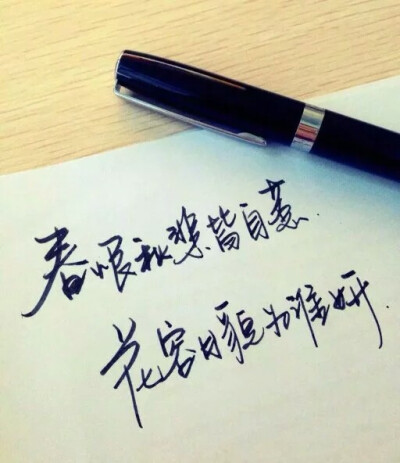 春恨秋悲皆自惹.
花容月貌为谁妍.